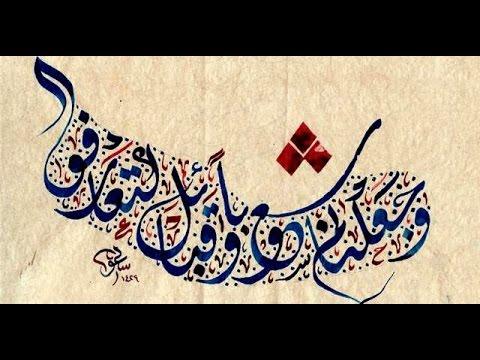 وَجَعَلْنَاكُمْ شُعُوبًا وَقَبَائِلَ لِتَعَارَفُوا
١٤٢٩